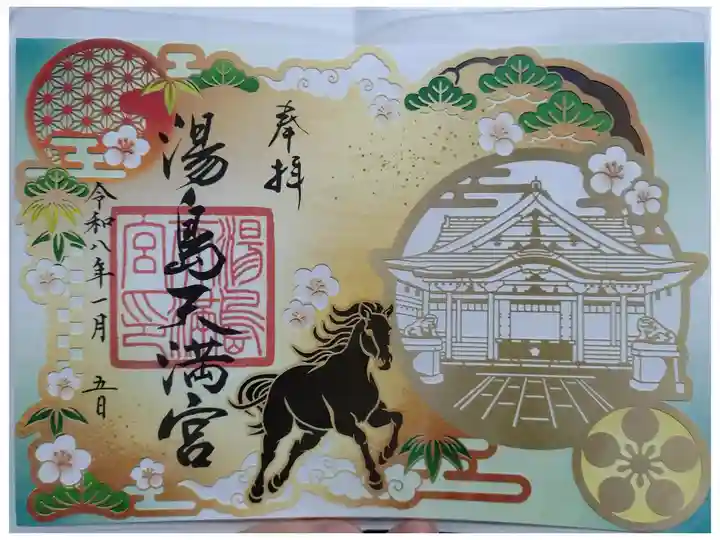 奉拝
湯島天満宮
湯島天満宮印
令和八年一月 五日